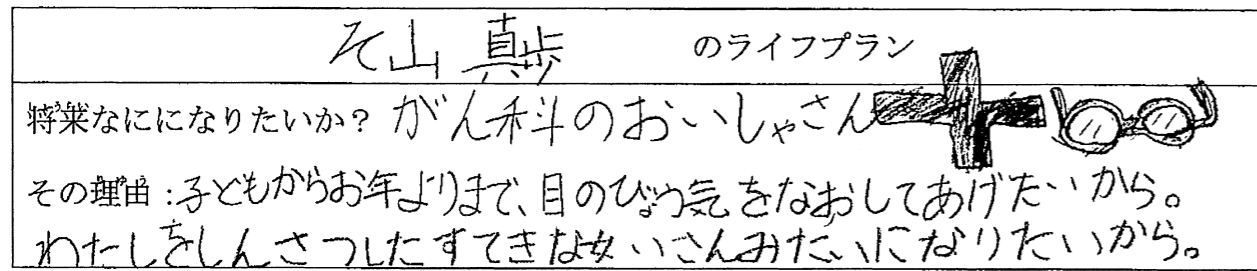 そ山 真歩 のライフプラン
将来なにになりたいか？ がん科のおいしゃさん
その理由：子どもからお年よりまで、目のびょう気をなおしてあげたいから。
わたしをしんさつしたすてきな女いさんみたいになりたいから。